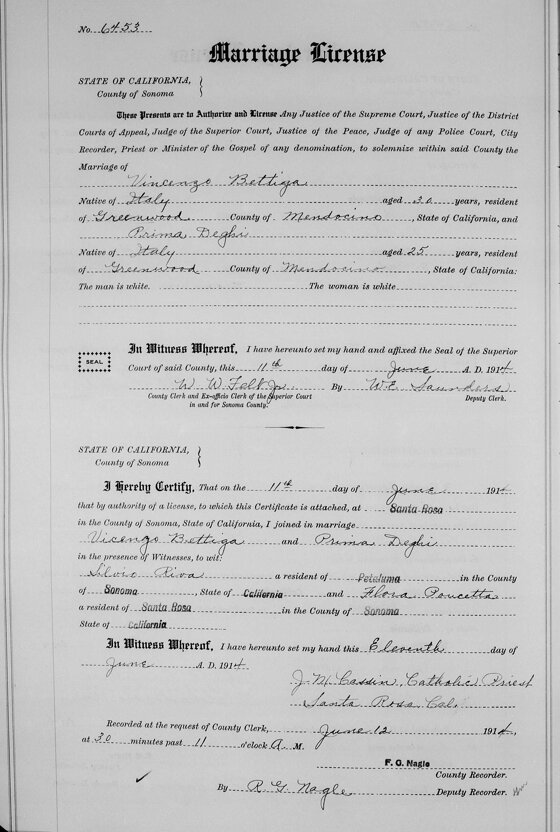 No. 6453
Marriage License
STATE OF CALIFORNIA,
County of Sonoma
These Presents are to Authorize and License Any Justice of the Supreme Court, Justice of the District
Courts of Appeal, Judge of the Superior Court, Justice of the Peace, Judge of any Police Court, City
Recorder, Priest or Minister of the Gospel of any denomination, to solemnize within said County the
Marriage of
Vincenzo Bettiga
Native of Italy aged 30 years, resident
of Greenwood County of Mendocino, State of California, and
Prima Deghi
Native of Italy aged 25 years, resident
of Greenwood County of Mendocino, State of California:
The man is white. The woman is white
In Witness Whereof, I have hereunto set my hand and affixed the Seal of the Superior
SEAL
Court of said County, this 11th day of June A. D. 1914
W. W. Felt Jr By W E Saunders
County Clerk and Ex-officio Clerk of the Superior Court Deputy Clerk.
in and for Sonoma County.
STATE OF CALIFORNIA,
County of Sonoma
I Hereby Certify, That on the 11th day of June 1914
that by authority of a license, to which this Certificate is attached, at Santa Rosa
in the County of Sonoma, State of California, I joined in marriage
Vicenzo Bettiga and Prima Deghi
in the presence of Witnesses, to wit:
Silvio Riva a resident of Petaluma in the County
of Sonoma, State of California and Flora Poucetta
a resident of Santa Rosa in the County of Sonoma
State of California
In Witness Whereof, I have hereunto set my hand this Eleventh day of
June A. D. 1914
J. M. Cassin, Catholic Priest
Santa Rosa, Cal.
Recorded at the request of County Clerk, June 12 1914,
at 30 minutes past 11 o'clock A. M.
F. G. Nagle
County Recorder.
By R. G. Nagle Deputy Recorder.